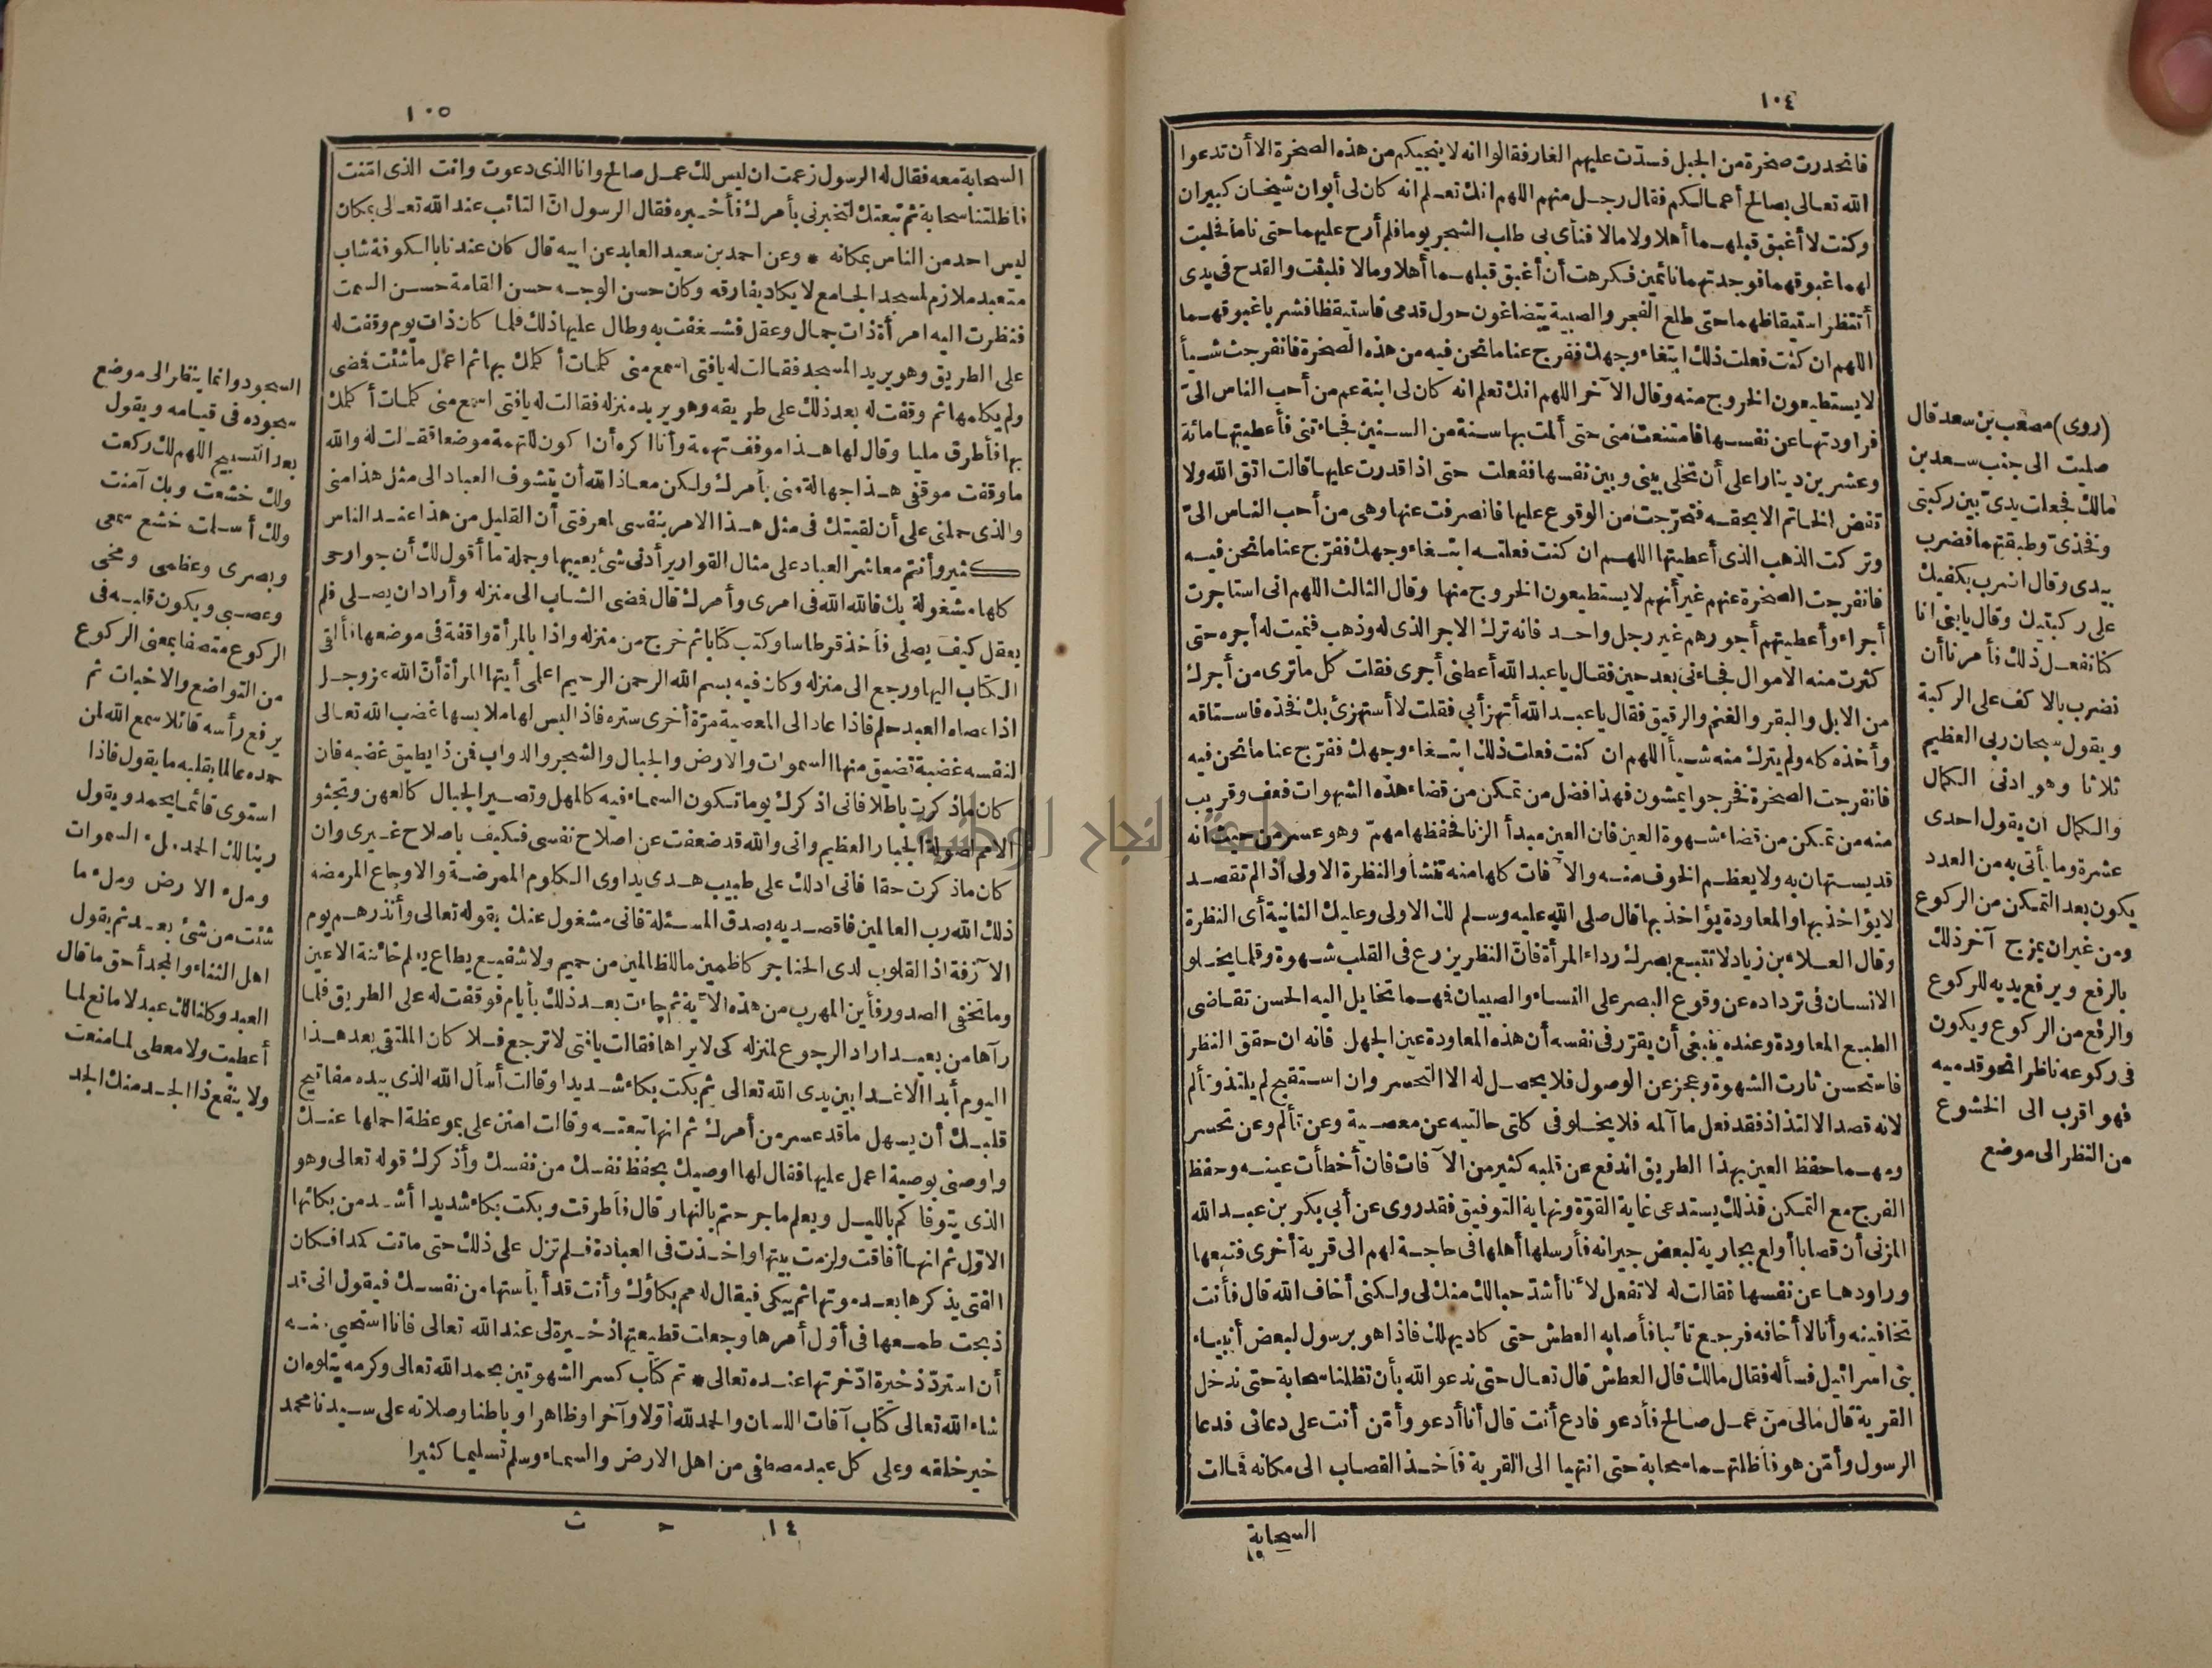 ١٠٤
فانحدرت صخرة من الجبل فسدّت عليهم الغار فقالوا انه لا ينجيكم من هذه الصخرة الا أن تدعوا
الله تعالى بصالح أعمالكم فقال رجل منهم اللهم انك تعلم انه كان لى أبوان شيخان كبيران
وكنت لا أغبق قبلهما أهلا ولا مالا فنأى بى طلب الشجر يوما فلم أرح عليهما حتى ناما فحلبت
لهما غبوقهما فوجدتهما نائمين فكرهت أن أغبق قبلهما أهلا ومالا فلبثت والقدح فى يدى
أنتظر استيقاظهما حتى طلع الفجر والصبية يتضاغون حول قدمى فاستيقظا فشربا غبوقهما
اللهم ان كنت فعلت ذلك ابتغاء وجهك ففرج عنا ما نحن فيه من هذه الصخرة فانفرجت شيأ
لا يستطيعون الخروج منه وقال الآخر اللهم انك تعلم انه كان لى ابنة عم من أحب الناس الىّ
فراودتها عن نفسها فامتنعت منى حتى ألمت بها سنة من السنين فجاءتنى فأعطيتها مائة
وعشرين دينارا على أن تخلى بينى وبين نفسها ففعلت حتى اذا قدرت عليها قالت اتق الله ولا
تفض الخاتم الا بحقه فتحرّجت من الوقوع عليها فانصرفت عنها وهى من أحب الناس الىّ
وتركت الذهب الذى أعطيتها اللهم ان كنت فعلته ابتغاء وجهك ففرّج عنا ما نحن فيه
فانفرجت الصخرة عنهم غير أنهم لا يستطيعون الخروج منها وقال الثالث اللهم انى استاجرت
أجراء وأعطيتهم أجورهم غير رجل واحد فانه ترك الاجر الذى له وذهب فنميت له أجره حتى
كثرت منه الاموال فجاءنى بعد حين فقال يا عبد الله أعطنى أجرى فقلت كل ما ترى من أجرك
من الابل والبقر والغنم والرقيق فقال يا عبد الله أتهزأ بى فقلت لا أستهزئ بك فخذه فاستاقه
وأخذه كله ولم يترك منه شيأ اللهم ان كنت فعلت ذلك ابتغاء وجهك ففرّج عنا ما نحن فيه
فانفرجت الصخرة فخرجوا يمشون فهذا فضل من تمكن من قضاء هذه الشهوات فعف وقريب
منه من تمكن من قضاء شهوة العين فان العين مبدأ الزنا فحفظها مهمّ وهو عسر من حيث انه
قد يستهان به ولا يعظم الخوف منه والآفات كلها منه تنشأ والنظرة الاولى اذا لم تقصد
لا يؤاخذ بها والمعاودة يؤاخذ بها قال صلى الله عليه وسلم لك الاولى وعليك الثانية أى النظرة
وقال العلاء بن زياد لا تتبع بصرك رداء المرأة فان النظر يزرع فى القلب شهوة وقلما يخلو
الانسان فى ترداده عن وقوع البصر على النساء والصبيان فهما تخايل اليه الحسن تقاضى
الطبع المعاودة وعنده ينبغى أن يقرّر فى نفسه أن هذه المعاودة عين الجهل فانه ان حقق النظر
فاستحسن ثارت الشهوة وعجز عن الوصول فلا يحصل له الا التحسر وان استقبح لم يلتذ وتألم
لانه قصد الالتذاذ فقد فعل ما آلمه فلا يخلو فى كلتى حالتيه عن معصية وعن تألم وعن تحسر
ومهما حفظ العين بهذا الطريق اندفع عن قلبه كثير من الآفات فان أخطأت عينه وحفظ
الفرج مع التمكن فذلك يستدعى غاية القوّة ونهاية التوفيق فقد روى عن أبى بكر بن عبد الله
المزنى أن قصابا أولع بجارية لبعض جيرانه فأرسلها أهلها فى حاجة لهم الى قرية أخرى فتبعها
وراودها عن نفسها فقالت له لا تفعل لأنا أشدّ حبا لك منك لى ولكنى أخاف الله قال فأنت
تخافينه وأنا لا أخافه فرجع تائبا فأصابه العطش حتى كاد يهلك فاذا هو برسول لبعض أنبياء
بنى اسرائيل فسأله فقال مالك قال العطش قال تعال حتى ندعو الله بأن تظلنا سحابة حتى ندخل
القرية قال مالى من عمل صالح فأدعو فادع أنت قال أنا أدعو وأمّن أنت على دعائى فدعا
الرسول وأمّن هو فأظلتهما سحابة حتى انتهيا الى القرية فأخذ القصاب الى مكانه فمالت
السحابة
(روى) مصعب بن سعد قال
صليت الى جنب سعد بن
مالك فجعلت يدىّ بين ركبتى
وفخذىّ وطبقتهما فضرب
بيدى وقال اضرب بكفيك
على ركبتيك وقال يا بنى انا
كنا نفعل ذلك فأمرنا أن
نضرب بالاكف على الركبة
ويقول سبحان ربى العظيم
ثلاثا وهو ادنى الكمال
والكمال ان يقول احدى
عشرة وما يأتى به من العدد
يكون بعد التمكن من الركوع
ومن غير ان يمزج آخر ذلك
بالرفع ويرفع يديه للركوع
والرفع من الركوع ويكون
فى ركوعه ناظرا نحو قدميه
فهو اقرب الى الخشوع
من النظر الى موضع
١٠٥
السحابة معه فقال له الرسول زعمت ان ليس لك عمل صالح وانا الذى دعوت وانت الذى امّنت
فاظلتنا سحابة ثم تبعتك لتخبرنى بأمرك فأخبره فقال الرسول انّ التائب عند الله تعالى بمكان
ليس احد من الناس بمكانه * وعن احمد بن سعيد العابد عن ابيه قال كان عندنا بالكوفة شاب
متعبد ملازم لمسجد الجامع لا يكاد يفارقه وكان حسن الوجه حسن القامة حسن السمت
فنظرت اليه امرأة ذات جمال وعقل فشغفت به وطال عليها ذلك فلما كان ذات يوم وقفت له
على الطريق وهو يريد المسجد فقالت له يا فتى اسمع منى كلمات أكلمك بها ثم اعمل ما شئت فمضى
ولم يكلمها ثم وقفت له بعد ذلك على طريقه وهو يريد منزله فقالت له يا فتى اسمع منى كلمات أكلمك
بها فأطرق مليا وقال لها هذا موقف تهمة وأنا اكره أن اكون للتهمة موضعا فقالت له والله
ما وقفت موقفى هذا جهالة منى بأمرك ولكن معاذ الله أن يتشوف العباد الى مثل هذا منى
والذى حملنى على أن لقيتك فى مثل هذا الامر بنفسى لمعرفتى أن القليل من هذا عند الناس
كثير وأنتم معاشر العباد على مثال القوارير أدنى شئ يعيبها وجملة ما أقول لك أن جوارحى
كلها مشغولة بك فالله الله فى امرى وأمرك قال فمضى الشاب الى منزله وأراد ان يصلى فلم
يعقل كيف يصلى فأخذ قرطاسا وكتب كتابا ثم خرج من منزله واذا بالمرأة واقفة فى موضعها فألقى
الكتاب اليها ورجع الى منزله وكان فيه بسم الله الرحمن الرحيم اعلمى أيتها المرأة أنّ الله عز وجل
اذا عصاه العبد حلم فاذا عاد الى المعصية مرّة أخرى ستره فاذا لبس لها ملابسها غضب الله تعالى
لنفسه غضبة تضيق منها السموات والارض والجبال والشجر والدواب فمن ذا يطيق غضبه فان
كان ما ذكرت باطلا فانى اذكرك يوما تكون السماء فيه كالمهل وتصير الجبال كالعهن وتجثو
الامم لصولة الجبار العظيم وانى والله قد ضعفت عن اصلاح نفسى فكيف باصلاح غيرى وان
كان ما ذكرت حقا فانى ادلك على طبيب هدى يداوى الكلوم الممرضة والاوجاع المرمضه
ذلك الله رب العالمين فاقصديه بصدق المسئلة فانى مشغول عنك بقوله تعالى وأنذرهم يوم
الآزفة اذ القلوب لدى الحناجر كاظمين ما للظالمين من حميم ولا شفيع يطاع يعلم خائنة الاعين
وما تخفى الصدور فأين المهرب من هذه الآية ثم جاءت بعد ذلك بأيام فوقفت له على الطريق فلما
رآها من بعيد اراد الرجوع لمنزله كى لا يراها فقالت يا فتى لا ترجع فلا كان الملتقى بعد هذا
اليوم أبدا الا غدا بين يدى الله تعالى ثم بكت بكاء شديدا وقالت أسأل الله الذى بيده مفاتيح
قلبك أن يسهل ما قد عسر من أمرك ثم انها تبعته وقالت امنن على بموعظة احملها عنك
واوصنى بوصية اعمل عليها فقال لها اوصيك بحفظ نفسك من نفسك وأذكرك قوله تعالى وهو
الذى يتوفاكم بالليل ويعلم ما جرحتم بالنهار قال فأطرقت وبكت بكاء شديدا أشد من بكائها
الاوّل ثم انها أفاقت ولزمت بيتها واخذت فى العبادة فلم تزل على ذلك حتى ماتت كمدا فكان
الفتى يذكرها بعد موتها ثم يبكى فيقال له مم بكاؤك وأنت قد أيأستها من نفسك فيقول انى قد
ذبحت طمعها فى أوّل أمرها وجعلت قطيعتها ذخيرة لى عند الله تعالى فانا استحيى منه
أن استردّ ذخيرة ادّخرتها عنده تعالى * تم كتاب كسر الشهوتين بحمد الله تعالى وكرمه يتلوه ان
شاء الله تعالى كتاب آفات اللسان والحمد لله أوّلا وآخرا وظاهرا وباطنا وصلاته على سيدنا محمد
خير خلقه وعلى كل عبد مصطفى من اهل الارض والسماء وسلم تسليما كثيرا
١٤ ح ث
السجود وانما ينظر الى موضع
سجوده فى قيامه ويقول
بعد التسبيح اللهم لك ركعت
ولك خشعت وبك آمنت
ولك أسلمت خشع سمعى
وبصرى وعظمى ومخى
وعصبى ويكون قلبه فى
الركوع متصفا بمعنى الركوع
من التواضع والاخبات ثم
يرفع رأسه قائلا سمع الله لمن
حمده عالما بقلبه ما يقول فاذا
استوى قائما يحمد ويقول
ربنا لك الحمد ملء السموات
وملء الارض وملء ما
شئت من شئ بعد ثم يقول
اهل الثناء والمجد أحق ما قال
العبد وكلنا لك عبد لا مانع لما
أعطيت ولا معطى لما منعت
ولا ينفع ذا الجد منك الجد
جامعة النجاح الوطنية